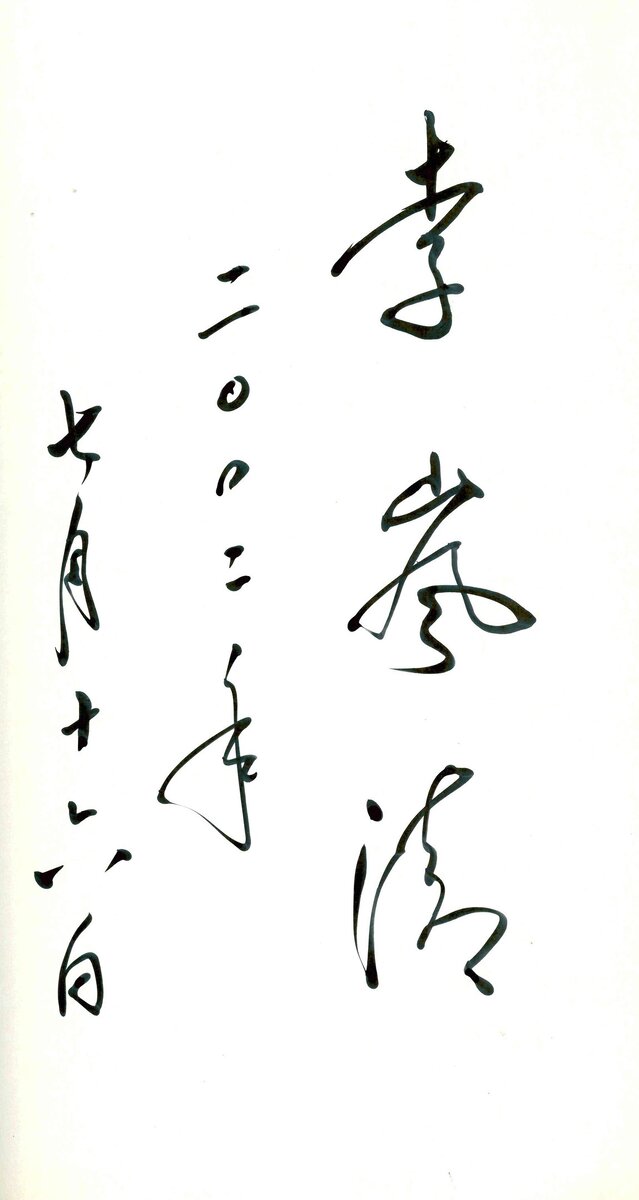 李岚清
二〇〇二年
七月十六日